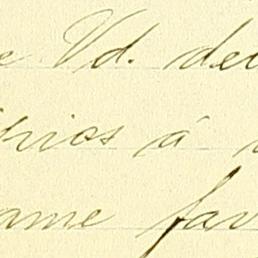 e Vd. deb
rios á
ame fav